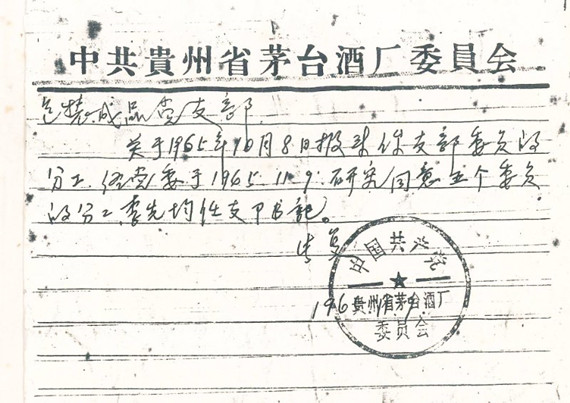 中共貴州省茅台酒厂委員会
包装成品党支部
关于1965年10月8日报来你支部委员的
分工.经党委于1965.11.9.研究同意五个委员
的分工.李先均任支部书记。
此复
中国共产党
196
貴州省茅台酒厂
委員会